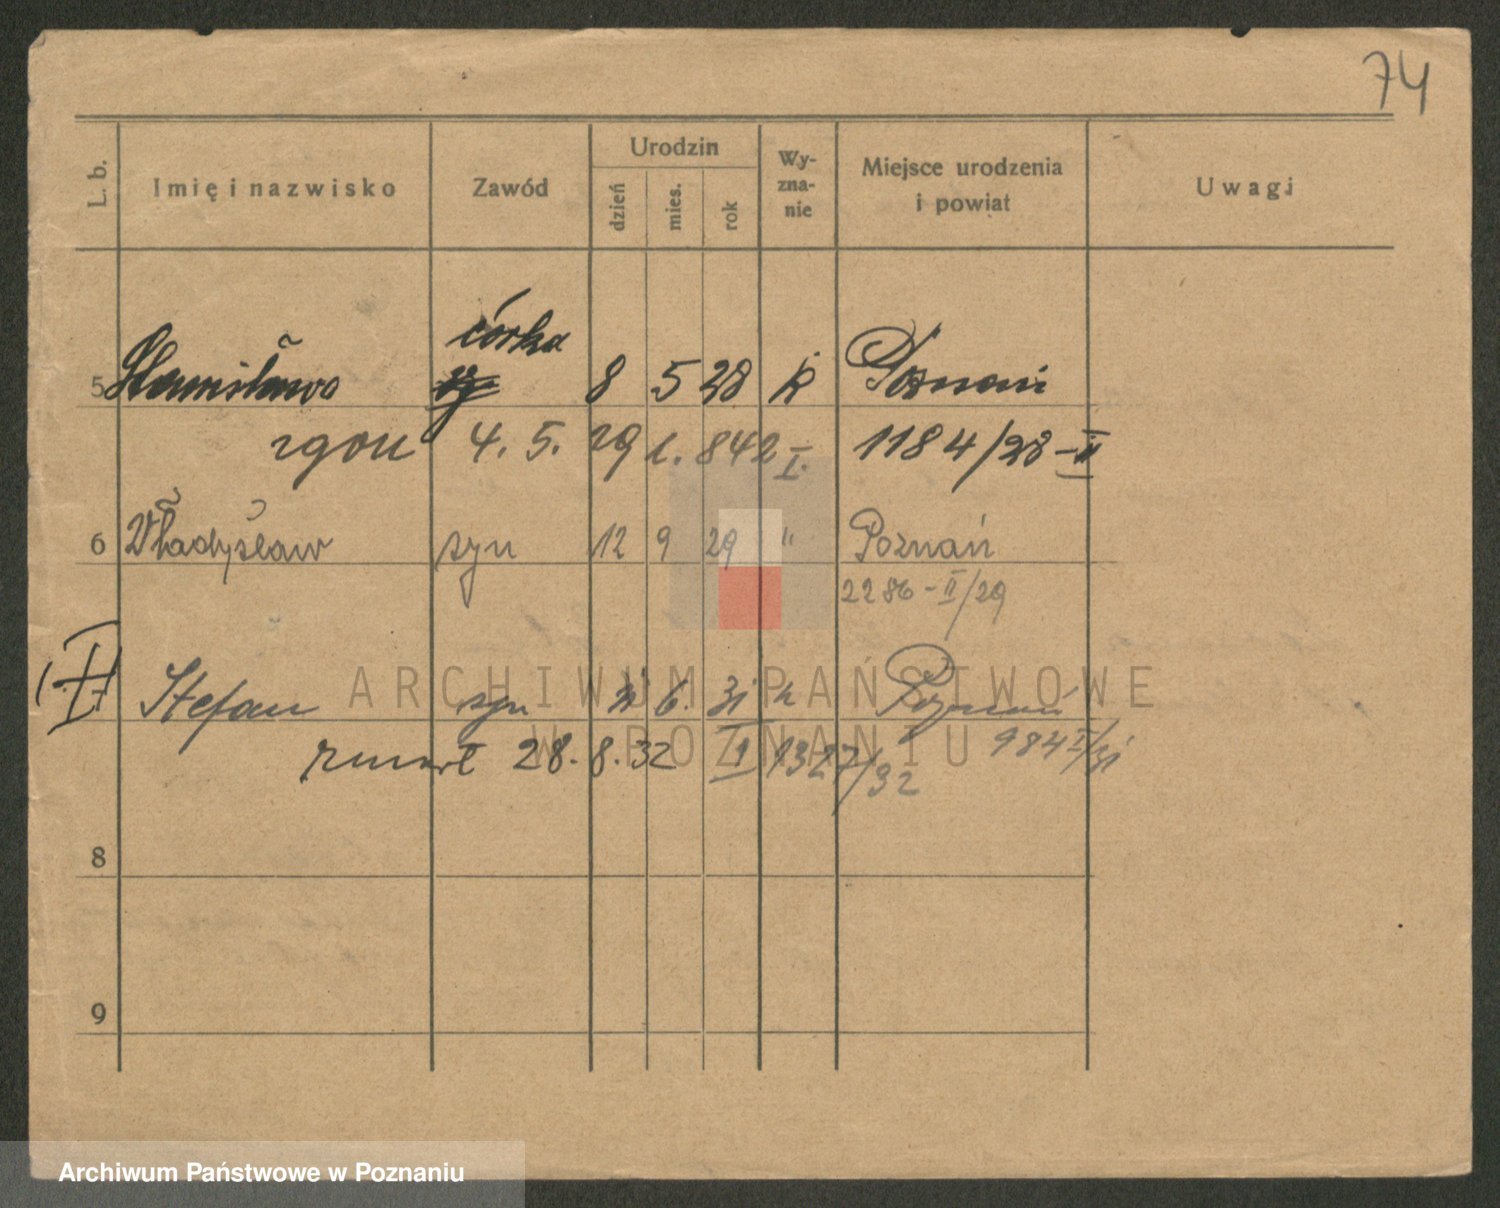 74
L. b.
Imię i nazwisko
Zawód
Urodzin
dzień
mies.
rok
Wy-
zna-
nie
Miejsce urodzenia
i powiat
Uwagi
córka
5 Stanisława 8 5 28 k Poznań
zgon 4. 5. 29 1. 842 I. 1184/28-II
6 Władysław syn 12 9 29 " Poznań
2286-II/29
Stefan syn 11 6. 31 k Poznań
984 I/31
zmarł 28. 8. 32 II 1327/32
8
9
ARCHIWUM PAŃSTWOWE
W POZNANIU
Archiwum Państwowe w Poznaniu